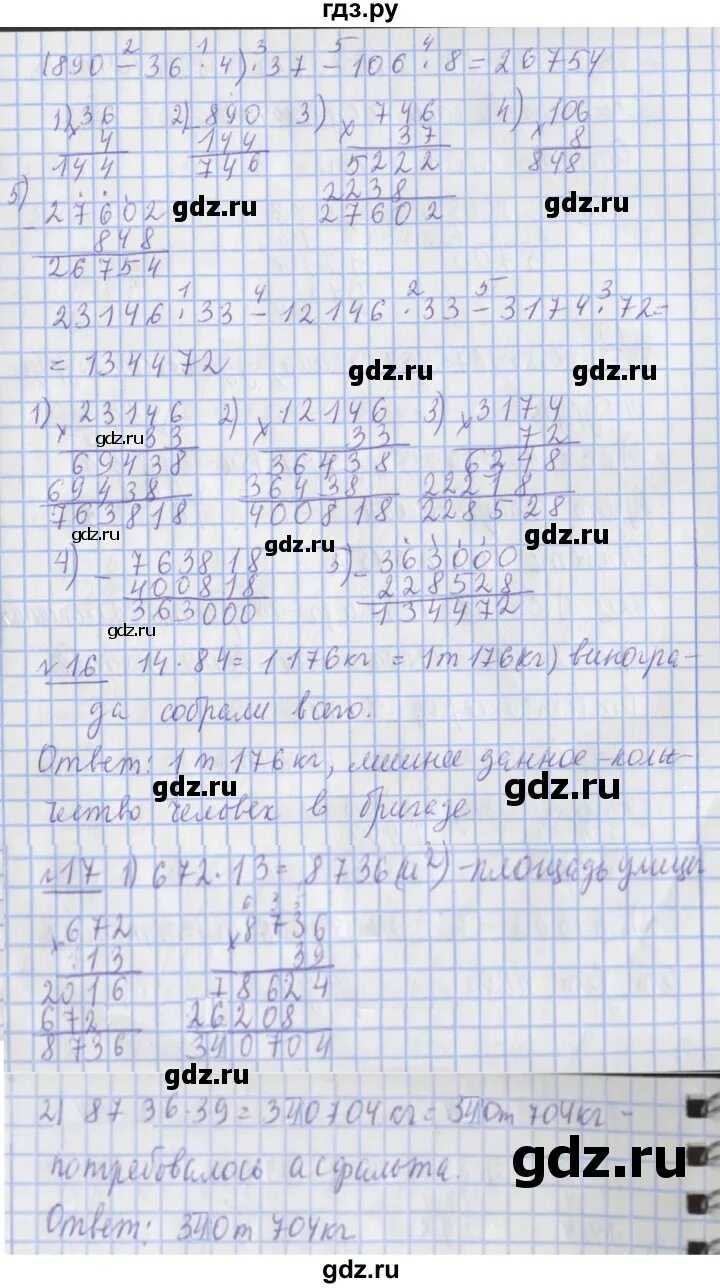 гдз.ру
(890 - 36 · 4) · 37 - 106 · 8 = 26754
2 1 3 5 4
1) 36 2) 890 3) 746 4) 106
× 4 - 144 × 37 × 8
144 746 5222 848
2238
27602
5) 27602
- 848
26754
gdz.ru gdz.ru
23146 · 33 - 12146 · 33 - 3174 · 72 =
1 4 2 5 3
= 134472
gdz.ru gdz.ru
1) 23146 2) 12146 3) 3174
× 33 × 33 × 72
69438 36438 6348
69438 36438 22218
763818 400818 228528
gdz.ru gdz.ru gdz.ru gdz.ru
4) - 763818 5) - 363000
400818 228528
363000 134472
gdz.ru
№16 14 · 84 = 1176 кг = 1т 176 кг) виногра-
да собрали всего.
Ответ: 1 т 176 кг, лишнее данное - коли-
чество человек в бригаде
gdz.ru gdz.ru
№17 1) 672 · 13 = 8736 (м²) - площадь улицы
× 672 × 8736
13 39
2016 78624
672 26208
8736 340704
gdz.ru
2) 8736 · 39 = 340704 кг = 340т 704кг -
потребовалось асфальта.
gdz.ru
Ответ: 340т 704кг
gdz.ru